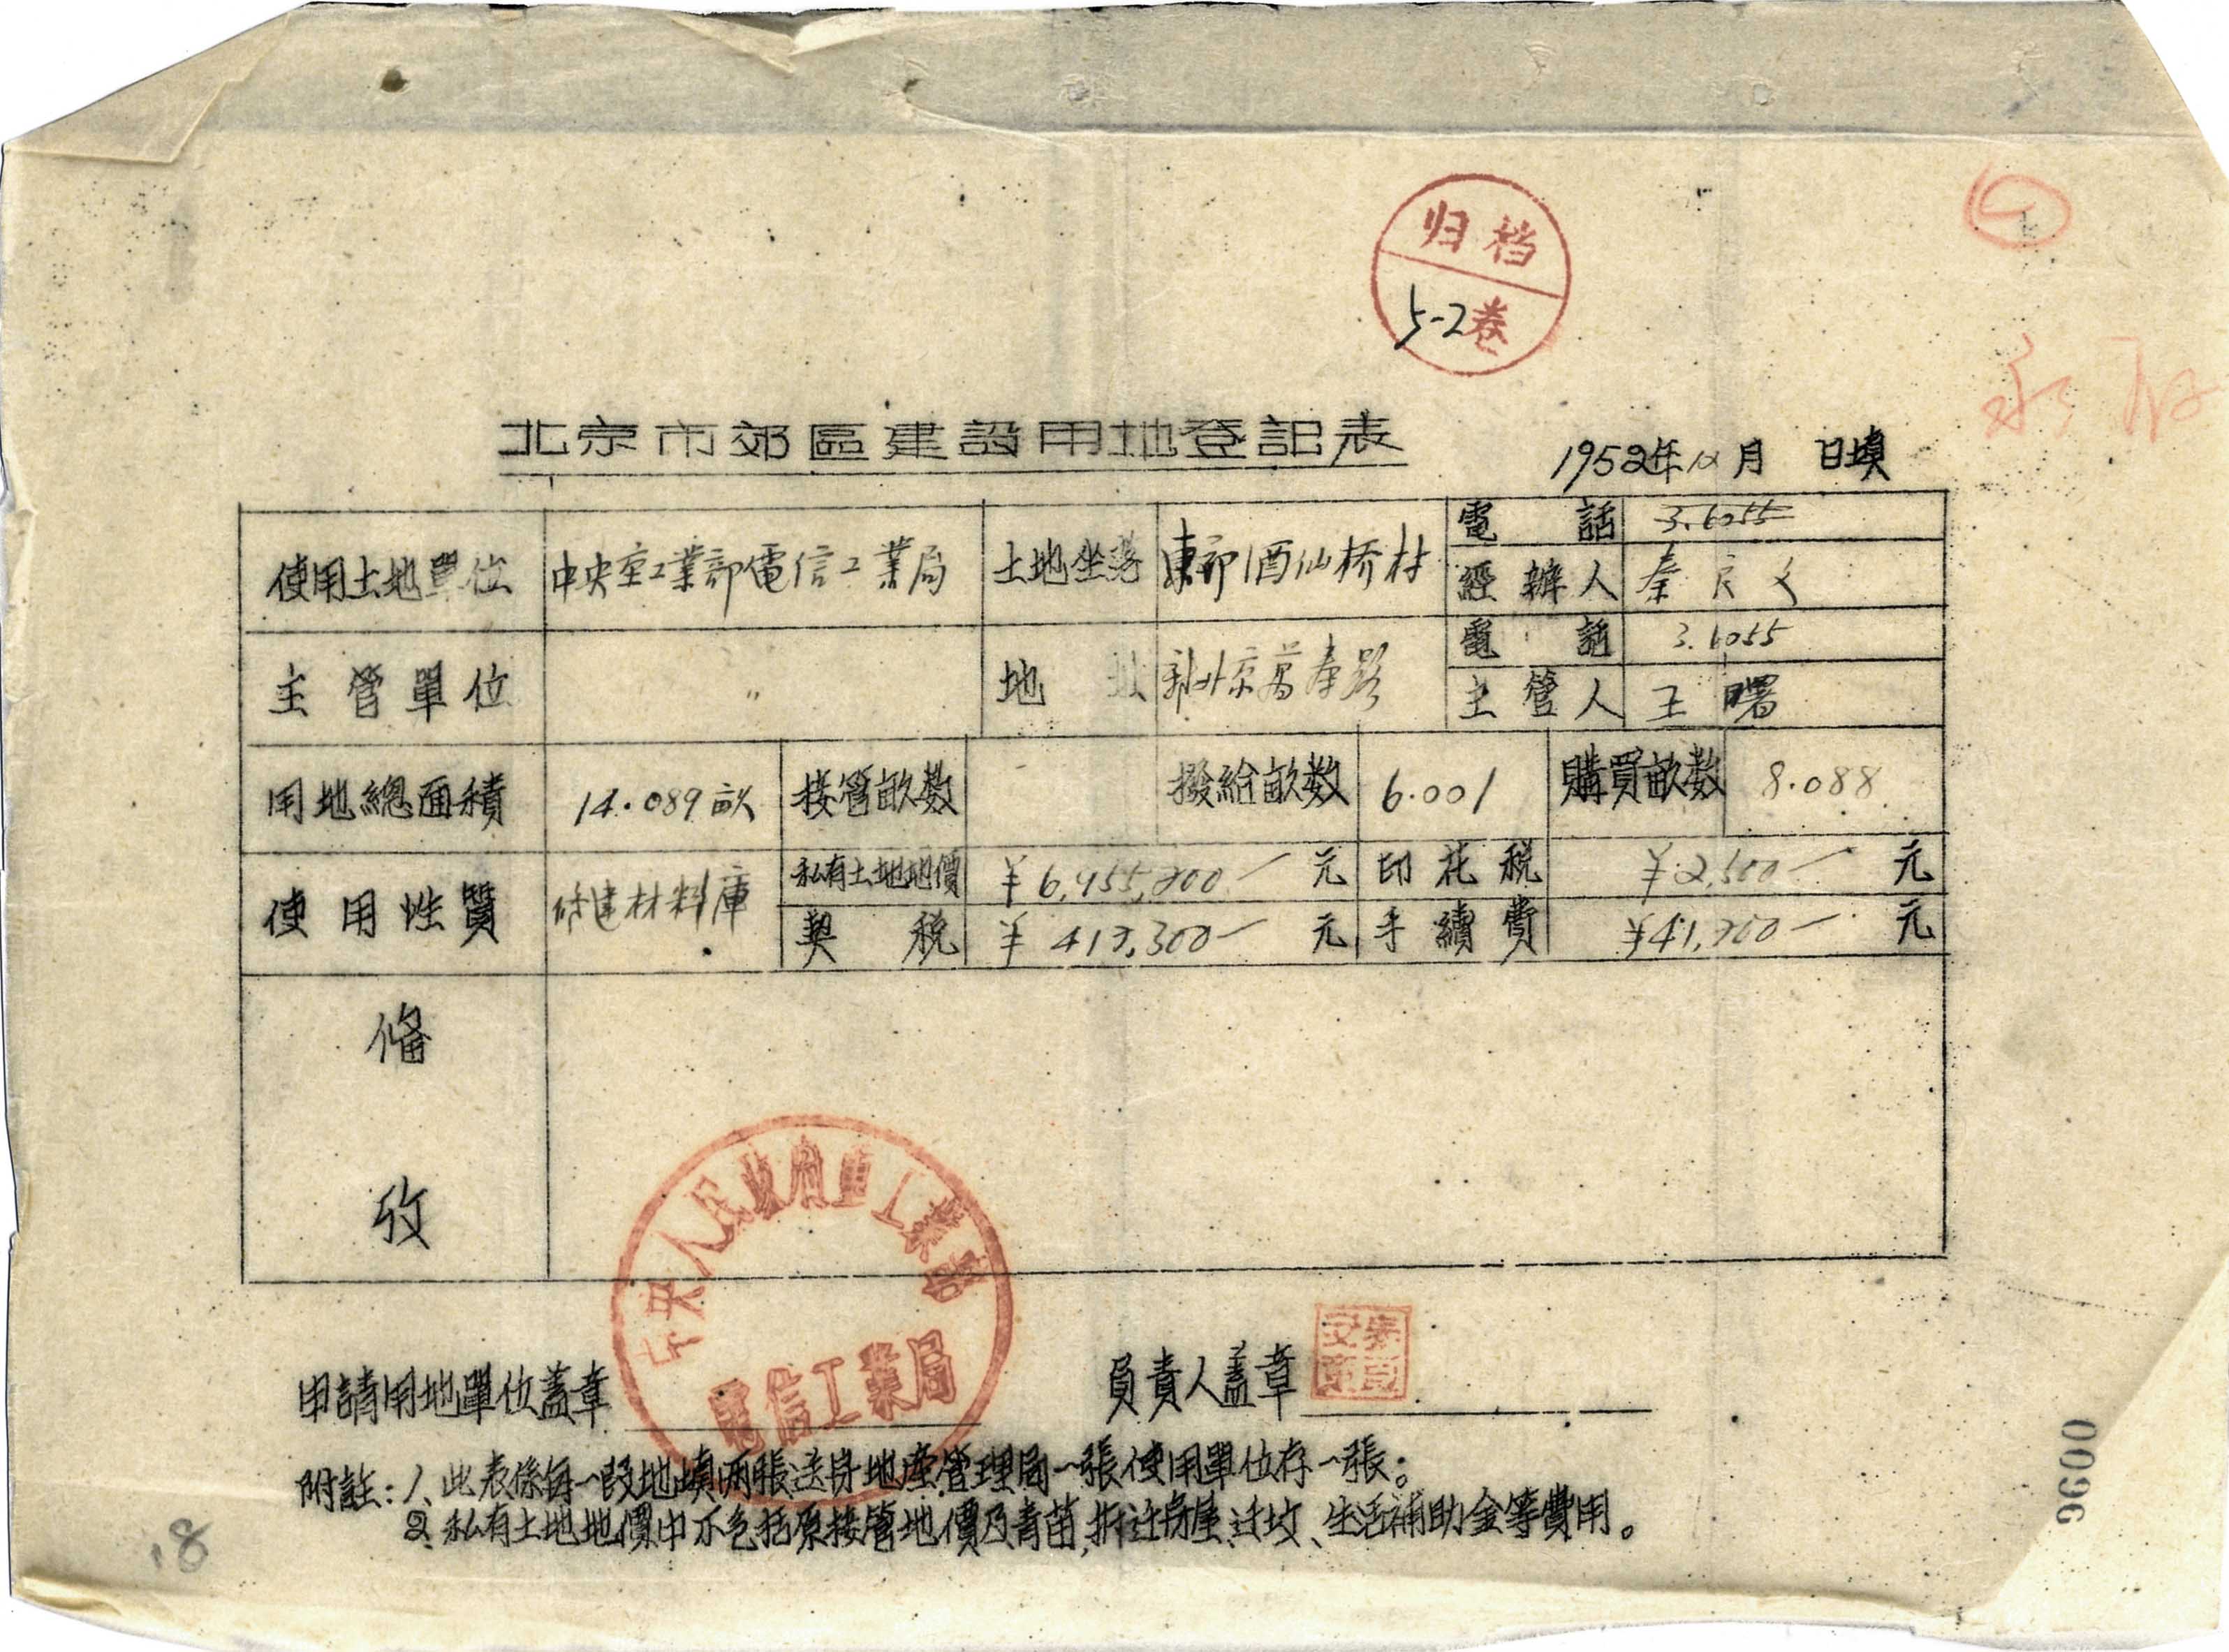 归档
5-2卷
北京市郊區建設用地登記表
1952年12月 日填
使用土地單位 中央重工業部電信工業局 土地坐落 東郊酒仙桥村 電話 3.6055
經辦人 秦
主管單位 〃 地 電話 3.6055
主管人 王曙
用地總面積 14.089亩 接管畝数 - 撥給畝数 6.001 購買畝数 8.088
使用性質 修建材料庫 私有土地地價 元 印花稅 ¥2,500- 元
契稅 元 手續費 元
備
攷
中央人民政府重工業部
電信工業局
申請用地單位蓋章
負責人蓋章
附註:1、此表係每一段地填两張送房地產管理局一張使用單位存一張。
2、私有土地地價中不包括原接管地價及青苗,拆迁房屋、迁坟、生活補助金等費用。
00096
18